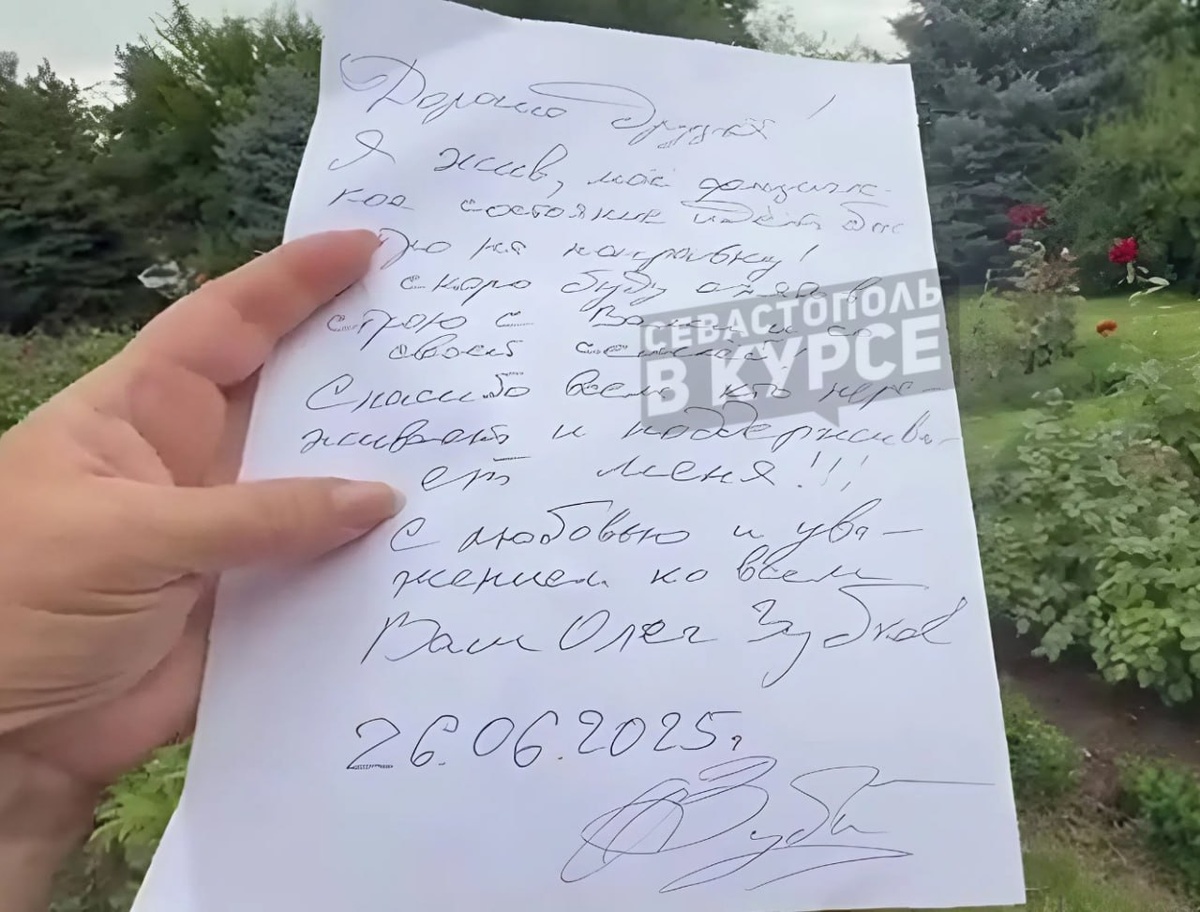 Дорогие друзья!
Я жив, моё физичес-
кое состояние идёт быс
тро на поправку!
скоро буду опять в
строю с Вами и со
своей семьёй!
Спасибо всем кто пере-
живает и поддержива-
ет меня!!!
С любовью и ува-
жением ко всем
Ваш Олег Зубков
26.06.2025г
СЕВАСТОПОЛЬ
В КУРСЕ